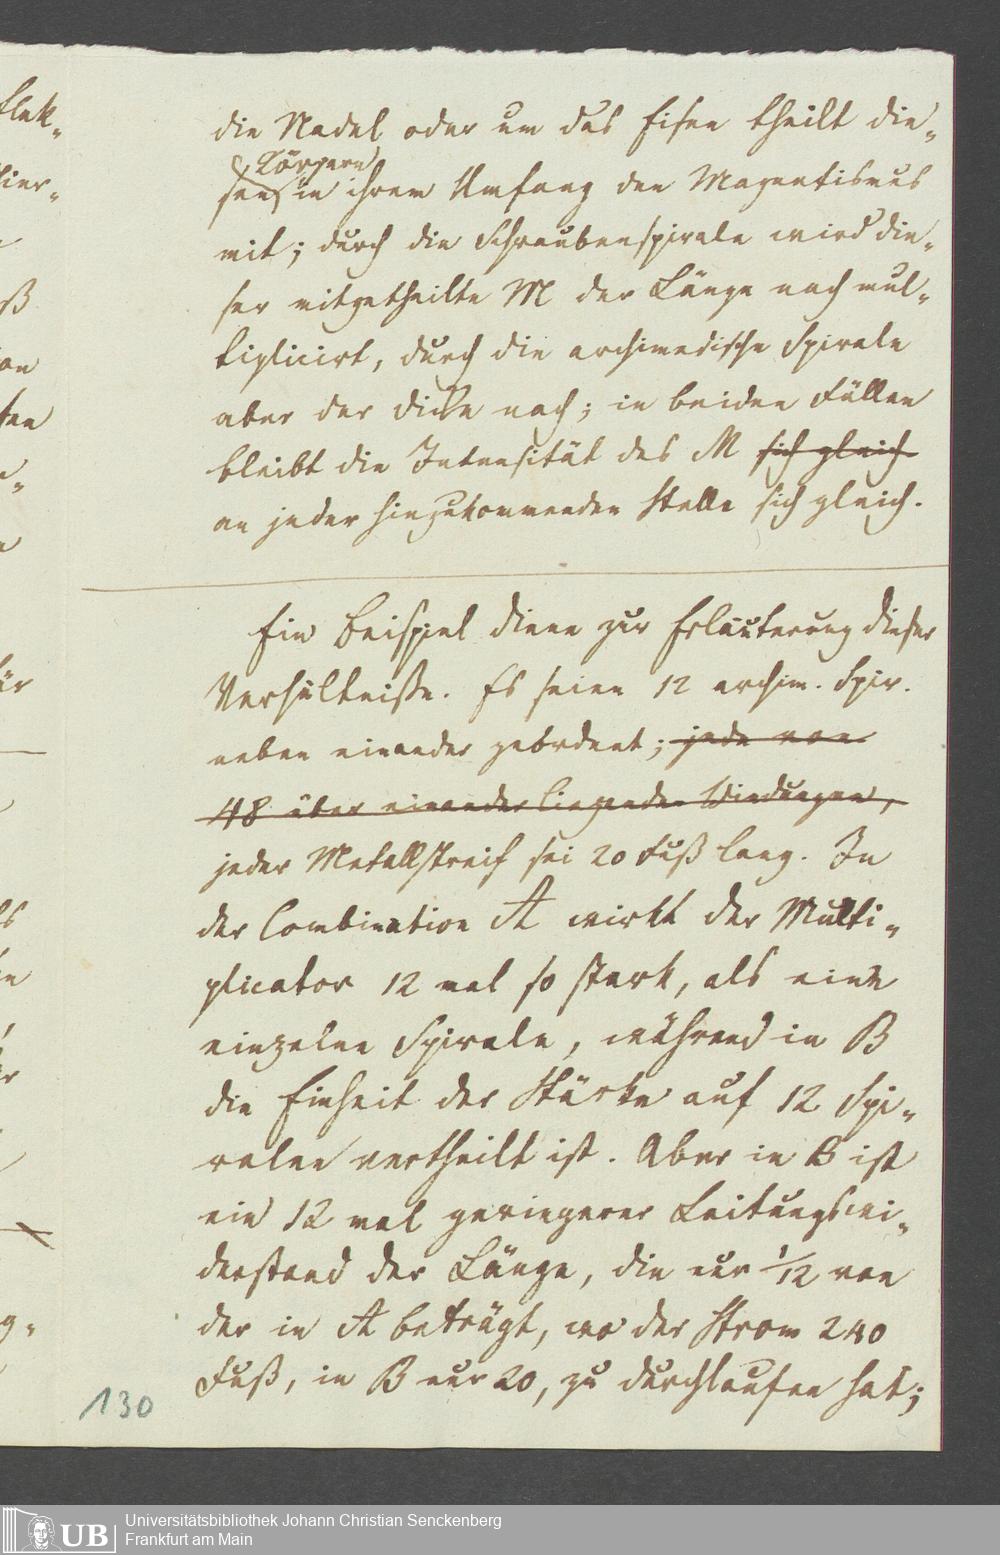 die Nadel oder um das Eisen theilt die„
Körpern
sen in ihrem Umfang den Magnetismus
mit; durch die Schraubenspirale wird die„
ser mitgetheilte M der Länge nach mul„
tiplicirt, durch die archimedische Spirale
aber der Dicke nach; in beiden Fällen
bleibt die Intensität des M sich gleich
an jeder hinzukommenden Stelle sich gleich.
Ein Beispiel diene zur Erläuterung dieser
Verhältniße. Es seien 12 archim. Spir.
neben einander geordnet; jede von
48 über einander liegenden Windungen,
jeder Metallstreif sei 20 Fuß lang. In
der Combination A wirkt der Multi„
plicator 12 mal so stark, als eine
einzelne Spirale, während in B
die Einheit der Stärke auf 12 Spi„
ralen vertheilt ist. Aber in B ist
ein 12 mal geringerer Leitungswi„
derstand der Länge, die nur 1/12 von
der in A beträgt, wo der Strom 240
Fuß, in B nur 20, zu durchlaufen hat;
130
UB
Universitätsbibliothek Johann Christian Senckenberg
Frankfurt am Main